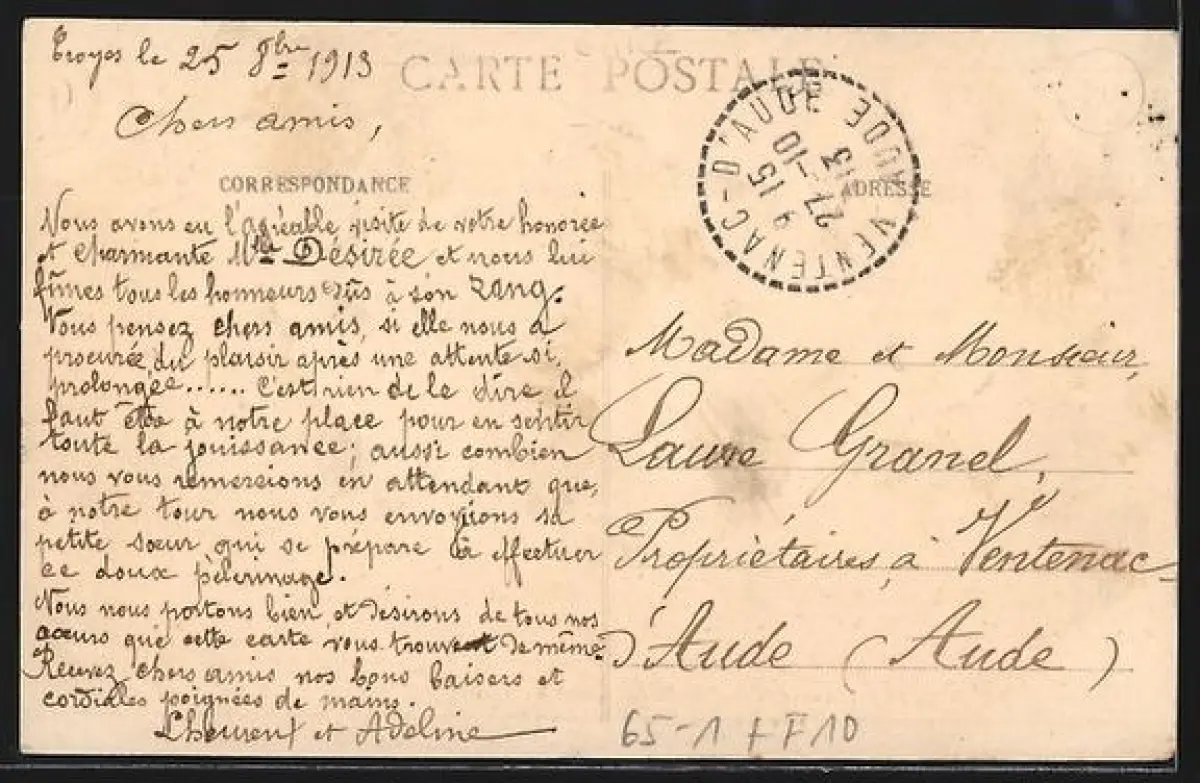 Troyes le 25 8bre 1913
CARTE POSTALE
Chers amis,
CORRESPONDANCE
Nous avons eu l'agréable visite de votre honorée
et charmante Mlle Désirée et nous lui
fîmes tous les honneurs dûs à son rang.
Vous pensez chers amis, si elle nous a
procurée du plaisir après une attente si
prolongée...... C'est rien de le dire il
faut être à notre place pour en sentir
toute la jouissance; aussi combien
nous vous remercions en attendant que,
à notre tour nous vous envoyions sa
petite sœur qui se prépare à effectuer
ce doux pèlerinage.
Nous nous portons bien et désirons de tous nos
cœurs que cette carte vous trouvent de même
Recevez chers amis nos bons baisers et
cordiales poignées de mains.
et Adeline
VENTENAC-D'AUDE AUDE
9 15
27-10
13
ADRESSE
Madame et Monsieur,
Laure Granel,
Propriétaires, à Ventenac-
d'Aude (Aude)
65-1 + F10